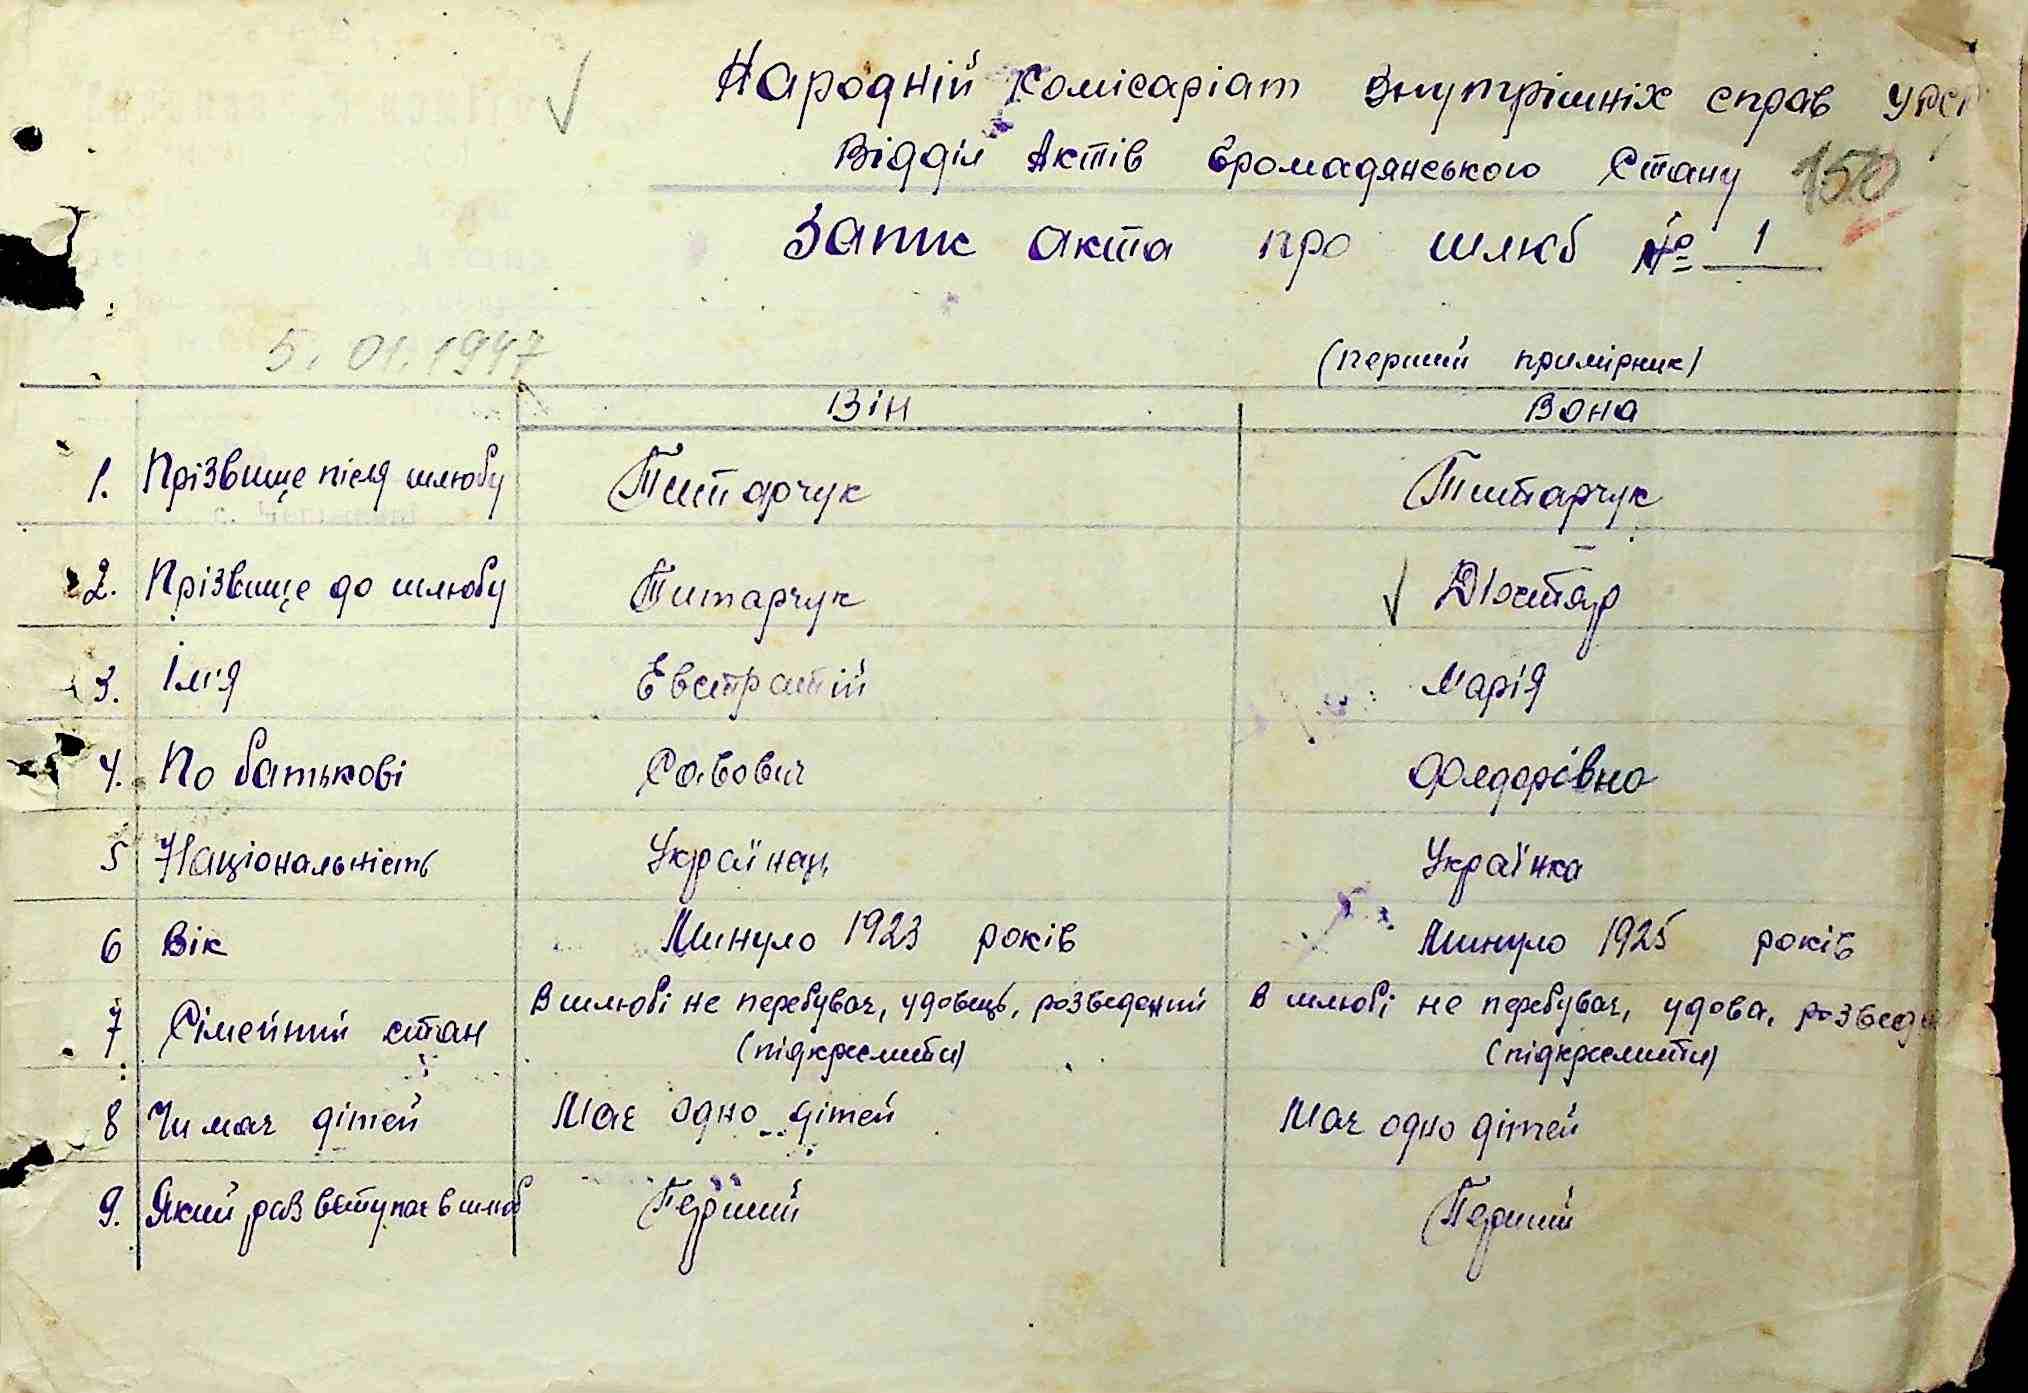 Народній Комісаріат Внутрішніх справ УРСР
Відділ Актів Громадянського Стану 150
Запис акта про шлюб № 1
5.01.1947
(перший примірник)
Він Вона
1. Прізвище після шлюбу Титарчук Титарчук
2. Прізвище до шлюбу Титарчук
3. Ім'я Евстратій Марія
4. По батькові Савович
5 Національність Українець Українка
6 Вік Минуло 1923 років Минуло 1925 років
7 Сімейний стан В шлюбі не перебував, удовець, розведений В шлюбі не перебувач, удова, розведе
(підкреслити) (підкреслити)
8 Чи має дітей Має одно дітей Має одно дітей
9. Який раз вступає в шлюб Перший Перший